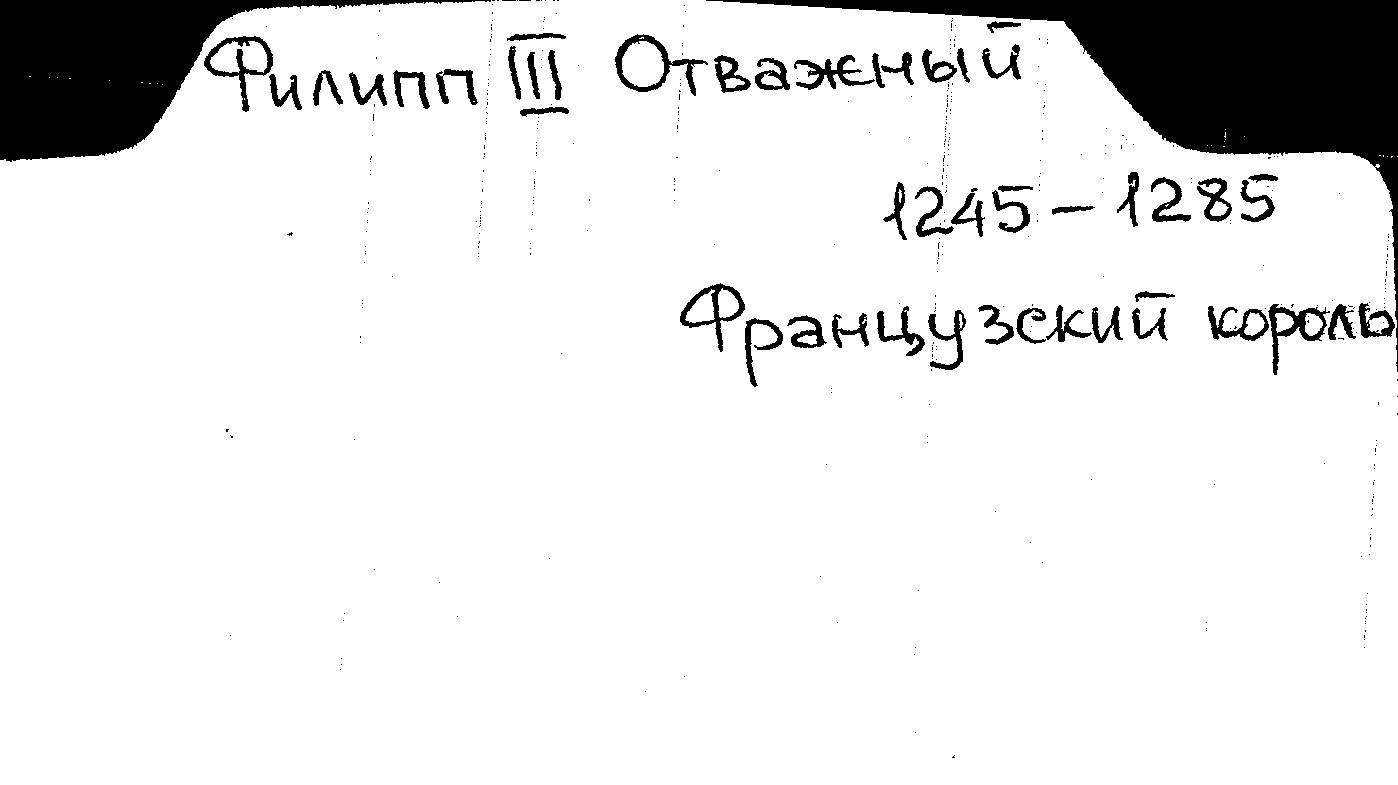 Филипп III Отважный
1245 – 1285
Французский король